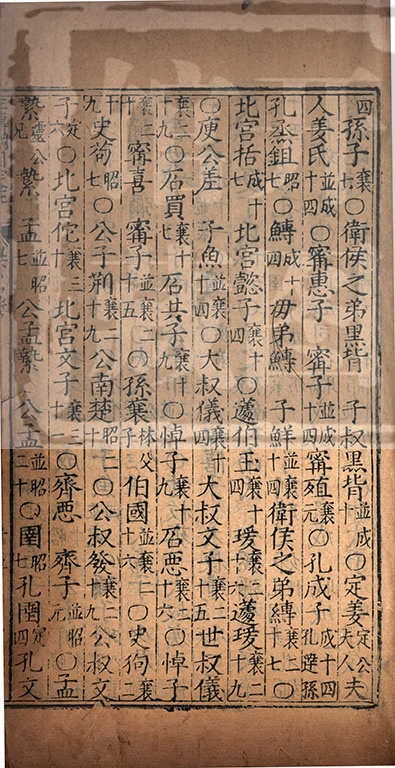 四孫子襄七〇衛侯之弟黑背 子叔黑背並成十〇定姜定公夫
人姜氏並成十四〇甯惠子 甯子並成十四甯殖襄元〇孔成子成十四孔達孫
孔烝鉏昭七〇鱄成十四毋弟鱄 子鮮並襄十四衛侯之弟鱄襄二十七〇
北宮括成十七 北宮懿子襄十四〇蘧伯玉襄十四瑗襄二十六蘧瑗襄二十九
〇庾公差 子魚並襄十四〇大叔儀襄十四大叔文子襄二十五世叔儀襄二
十九〇石買襄十七石共子襄十九〇悼子襄十九石惡襄二十六〇悼子
襄二十甯喜 甯子並襄二十五〇孫襄林父子伯國並襄二十六〇史狗襄二
十九史苟昭七〇公子荊襄二十九公南楚昭二十〇公叔發襄二十九公叔文
子定六〇北宮佗襄三十北宮文子襄三十一〇齊惡 齊子並昭元〇孟
縶靈公兄縶 孟並昭七 公孟縶 公孟並昭二十〇圉昭七孔圉定四孔文